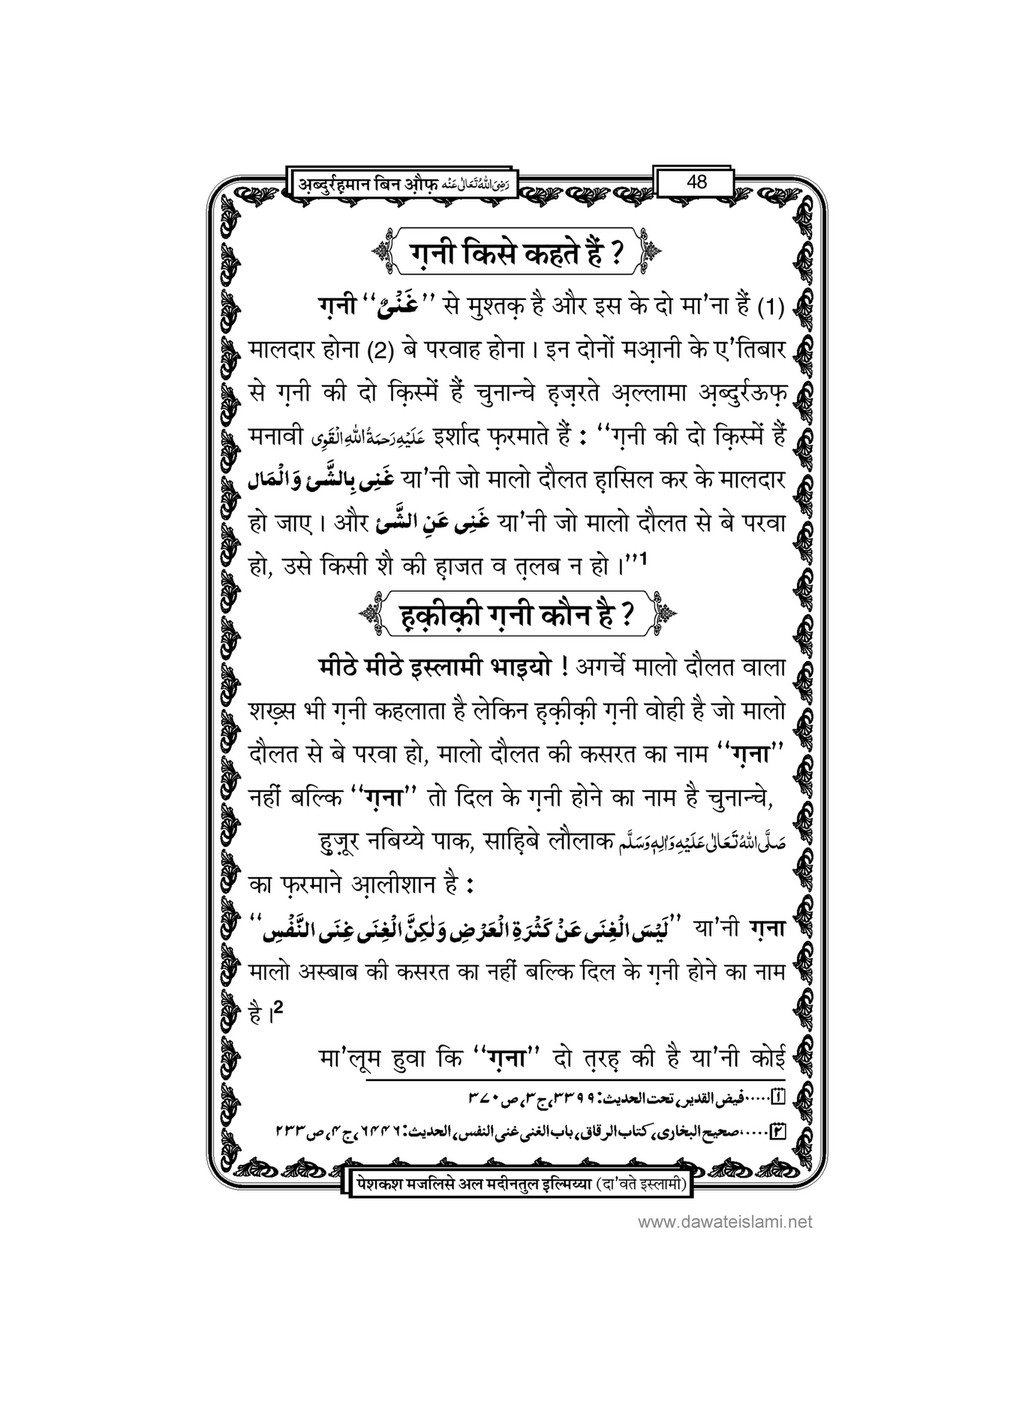 अ़ब्दुर्रह़मान बिन औ़फ़ رَضِیَ اللّٰہُ تَعَالٰی عَنْہ
48
ग़नी किसे कहते हैं ?
ग़नी ‘‘غَنْیٌ’’ से मुश्तक़ है और इस के दो मा’ना हैं (1)
मालदार होना (2) बे परवाह होना । इन दोनों मआ़नी के ए’तिबार
से ग़नी की दो क़िस्में हैं चुनान्चे ह़ज़रते अ़ल्लामा अ़ब्दुर्रऊफ़
मनावी عَلَیْہِ رَحمَۃُ اللّٰہِ الْقَوِی इर्शाद फ़रमाते हैं : ‘‘ग़नी की दो क़िस्में हैं
غَنِی بِالشَّیْ وَالْمَال या’नी जो मालो दौलत ह़ासिल कर के मालदार
हो जाए । और غَنِی عَنِ الشَّیْ या’नी जो मालो दौलत से बे परवा
हो, उसे किसी शै की ह़ाजत व त़लब न हो ।’’1
ह़क़ीक़ी ग़नी कौन है ?
मीठे मीठे इस्लामी भाइयो ! अगर्चे मालो दौलत वाला
शख़्स भी ग़नी कहलाता है लेकिन ह़क़ीक़ी ग़नी वोही है जो मालो
दौलत से बे परवा हो, मालो दौलत की कसरत का नाम ‘‘ग़ना’’
नहीं बल्कि ‘‘ग़ना’’ तो दिल के ग़नी होने का नाम है चुनान्चे,
हुज़ूर नबिय्ये पाक, साह़िबे लौलाक صَلَّی اللّٰہُ تَعَالٰی عَلَیْہِ وَاٰلِہٖ وَسَلَّم
का फ़रमाने आ़लीशान है :
‘‘لَیْسَ الْغِنَی عَنْ کَثْرَۃِ الْعَرْضِ وَلٰکِنَّ الْغِنَی غِنَی النَّفْسِ’’ या’नी ग़ना
मालो अस्बाब की कसरत का नहीं बल्कि दिल के ग़नी होने का नाम
है ।2
मा’लूम हुवा कि ‘‘ग़ना’’ दो त़रह़ की है या’नी कोई
۱.....فیض القدیر، تحت الحدیث: ۳۳۹۹، ج۳، ص۳۷۰
۲.....صحیح البخاری، کتاب الرقاق، باب الغنی غنی النفس، الحدیث: ۶۴۴۶، ج۴، ص۲۳۳
पेशकश मजलिसे अल मदीनतुल इल्मिय्या (दा’वते इस्लामी)
www.dawateislami.net